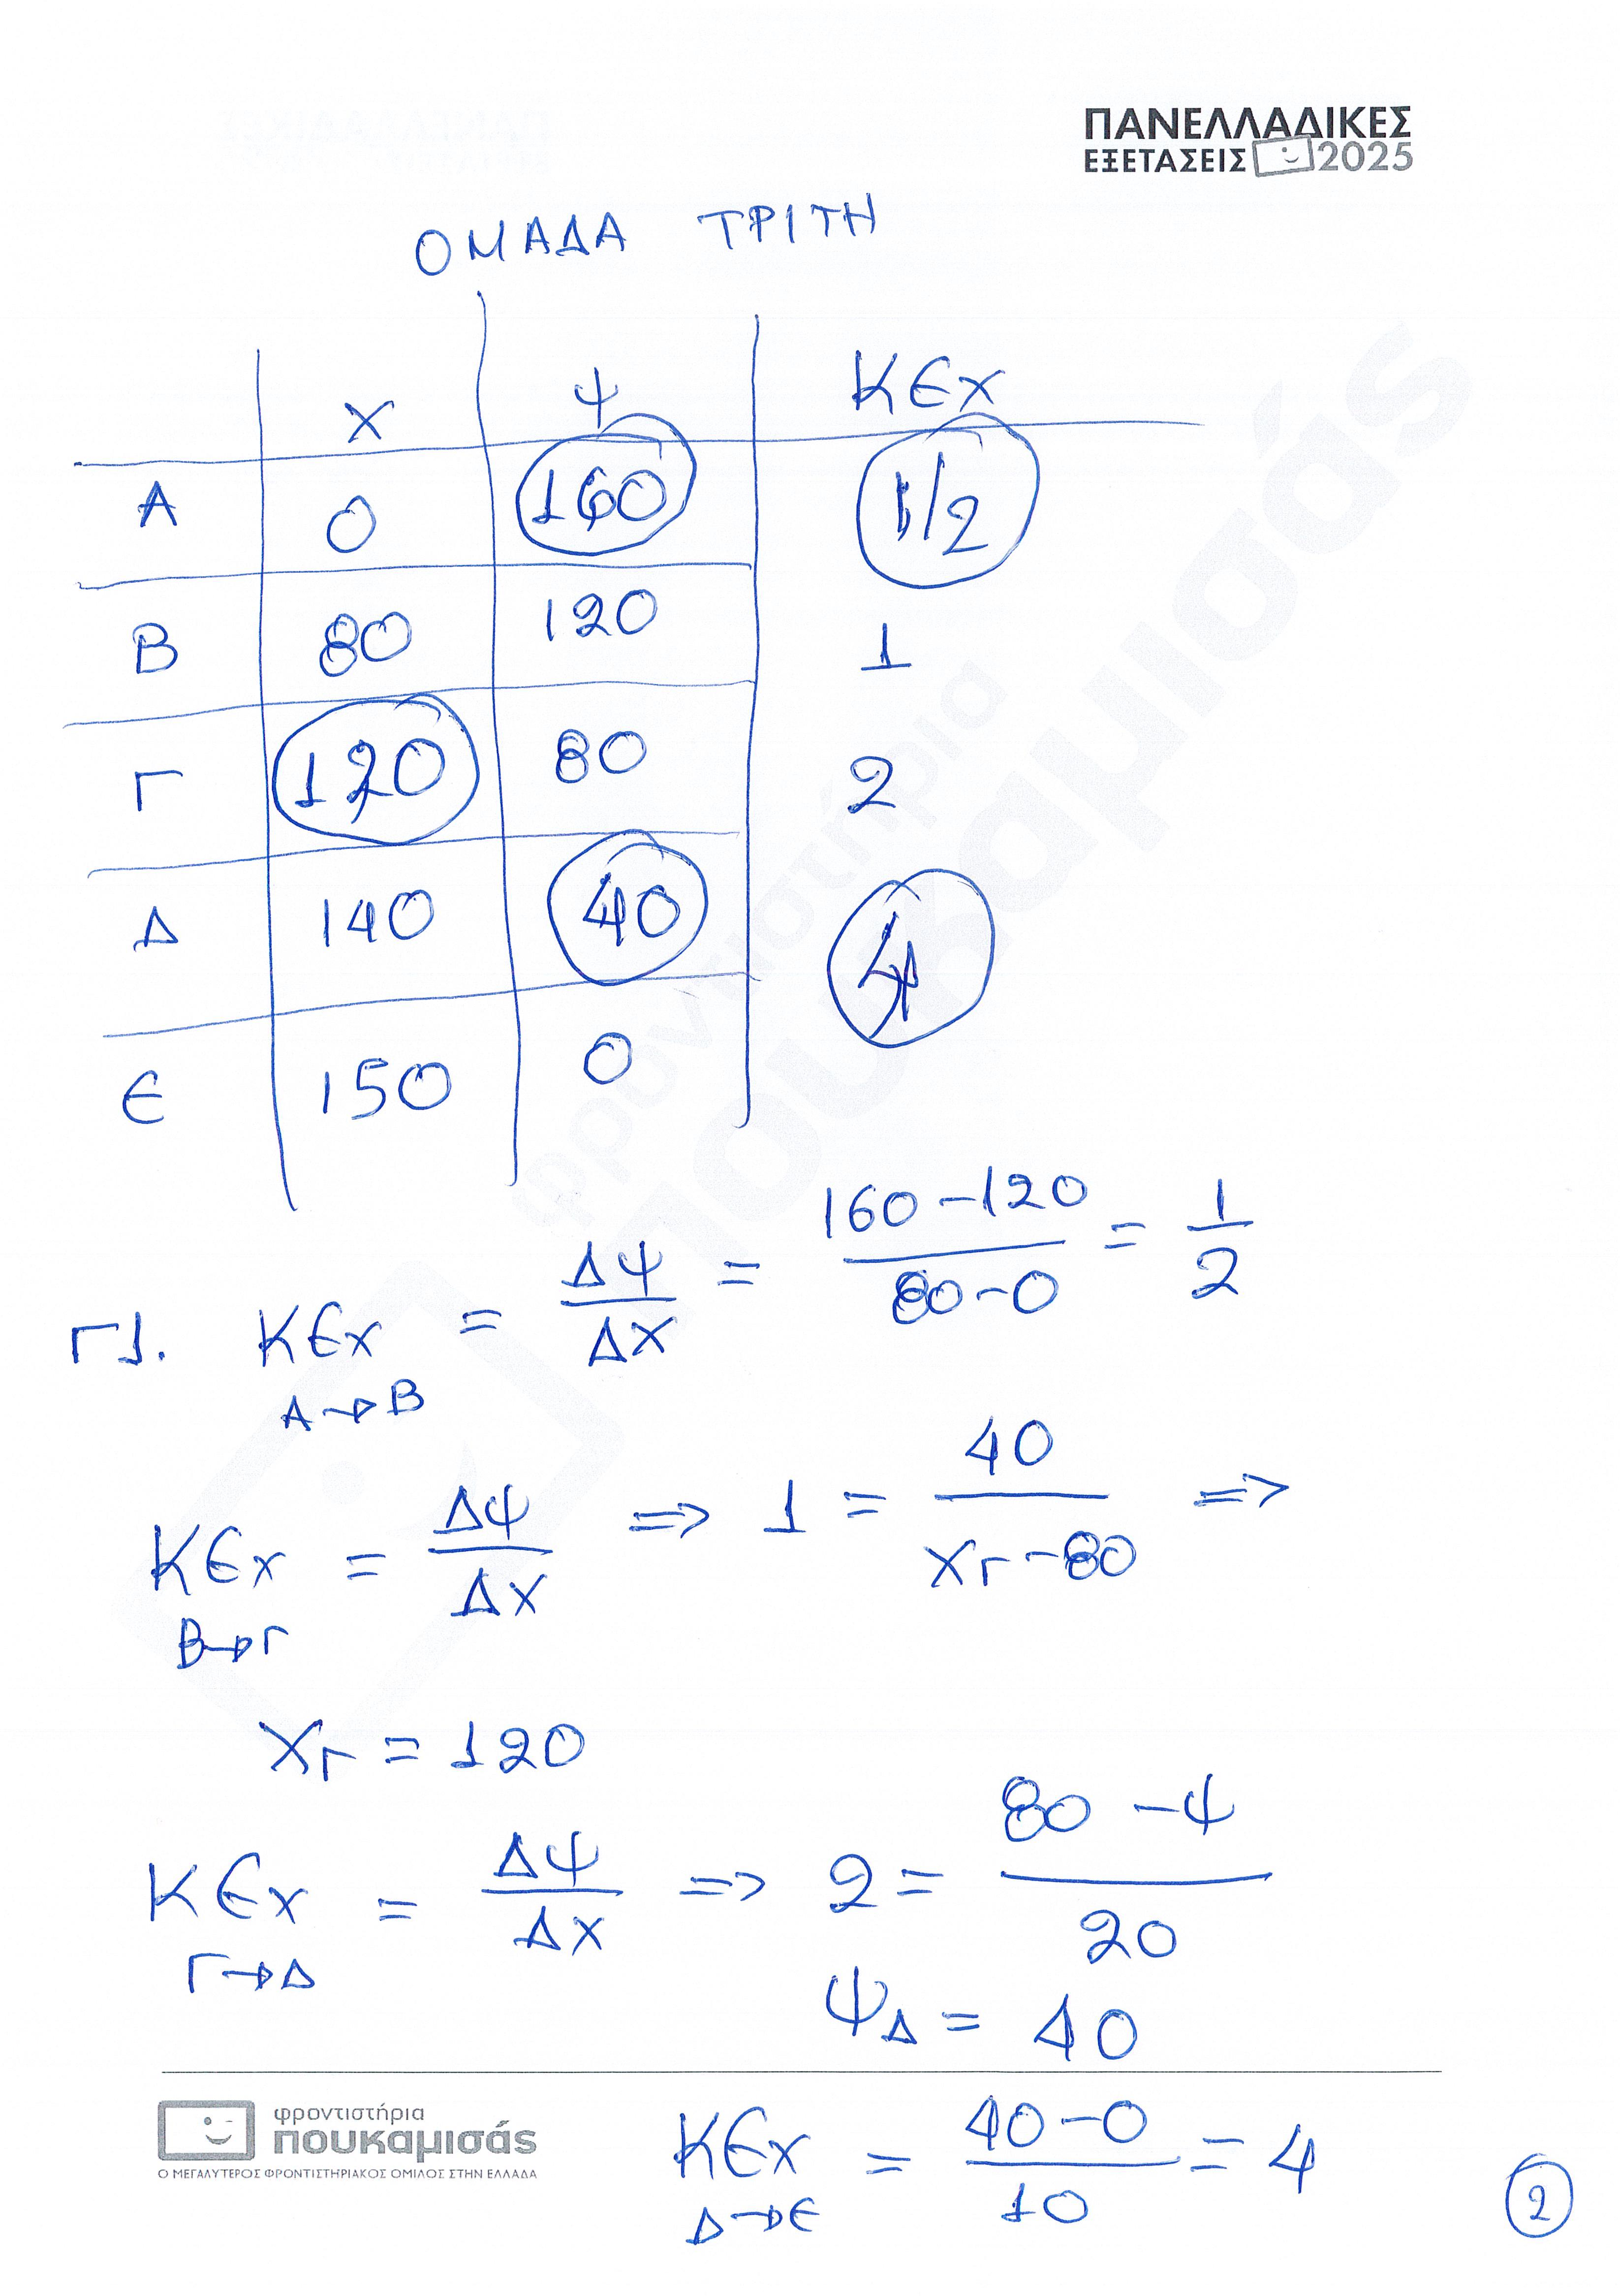 ΠΑΝΕΛΛΑΔΙΚΕΣ
ΕΞΕΤΑΣΕΙΣ 2025
ΟΜΑΔΑ ΤΡΙΤΗ
Χ Ψ ΚΕχ
Α 0 160 1/2
Β 80 120 1
Γ 120 80 2
Δ 140 40 4
Ε 150 0
Γ1. ΚΕχ Α→Β = ΔΨ/ΔΧ = (160-120)/(80-0) = 1/2
ΚΕχ Β→Γ = ΔΨ/ΔΧ => 1 = 40/(ΧΓ-80) =>
ΧΓ = 120
ΚΕχ Γ→Δ = ΔΨ/ΔΧ => 2 = (80-Ψ)/20
ΨΔ = 40
ΚΕχ Δ→Ε = (40-0)/10 = 4
φροντιστήρια
πουκαμισάς
Ο ΜΕΓΑΛΥΤΕΡΟΣ ΦΡΟΝΤΙΣΤΗΡΙΑΚΟΣ ΟΜΙΛΟΣ ΣΤΗΝ ΕΛΛΑΔΑ
2
φροντιστήρια
πουκαμισάς